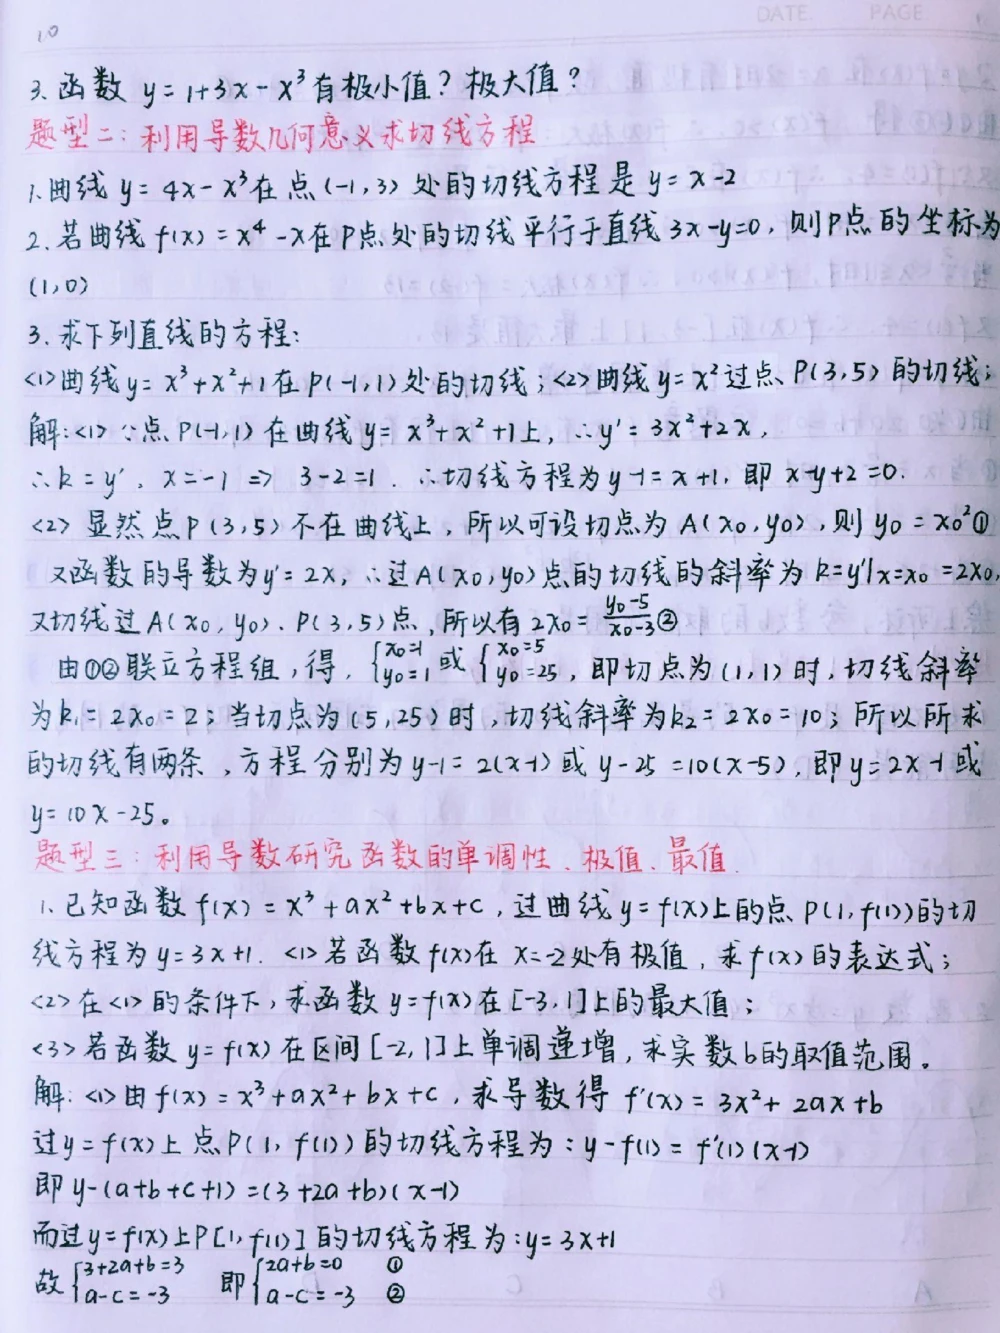 10
DATE PAGE
3. 函数 y = 1+3x-x³ 有极小值？极大值？
题型二：利用导数几何意义求切线方程
1. 曲线 y = 4x-x³ 在点(-1,3) 处的切线方程是 y = x-2
2. 若曲线 f(x) = x⁴-x 在P点处的切线平行于直线3x-y=0，则P点的坐标为
(1,0)
3. 求下列直线的方程：
<1>曲线 y = x³+x²+1 在P(-1,1) 处的切线；<2>曲线 y = x² 过点P(3,5) 的切线；
解：<1> ∵点P(-1,1) 在曲线 y = x³+x²+1上，∴y' = 3x²+2x，
∴k = y'，x = -1 => 3-2=1. ∴切线方程为y-1=x+1，即 x-y+2=0.
<2> 显然点P(3,5)不在曲线上，所以可设切点为A(x₀,y₀)，则y₀ = x₀²①
又函数的导数为y'=2x，∴过A(x₀,y₀)点的切线的斜率为 k=y'|x=x₀=2x₀，
又切线过A(x₀,y₀)、P(3,5)点，所以有2x₀= (y₀-5)/(x₀-3)②
由①②联立方程组，得，{x₀=1 y₀=1 或 {x₀=5 y₀=25，即切点为(1,1)时，切线斜率
为k₁=2x₀=2；当切点为(5,25)时，切线斜率为k₂=2x₀=10；所以所求
的切线有两条，方程分别为y-1=2(x-1)或 y-25=10(x-5)，即y=2x-1或
y=10x-25。
题型三：利用导数研究函数的单调性、极值、最值.
1. 已知函数f(x) = x³+ax²+bx+c，过曲线y=f(x)上的点P(1,f(1))的切
线方程为y=3x+1. <1>若函数f(x)在 x=-2处有极值，求f(x)的表达式；
<2>在<1>的条件下，求函数y=f(x)在[-3,1]上的最大值；
<3>若函数y=f(x)在区间[-2,1]上单调递增，求实数b的取值范围。
解：<1>由f(x) = x³+ax²+bx+c，求导数得 f'(x) = 3x²+2ax+b
过y=f(x)上点P(1,f(1))的切线方程为：y-f(1) = f'(1)(x-1)
即 y-(a+b+c+1)=(3+2a+b)(x-1)
而过y=f(x)上P[1,f(1)]的切线方程为：y=3x+1
故{3+2a+b=3 a-c=-3 即{2a+b=0 ① a-c=-3 ②